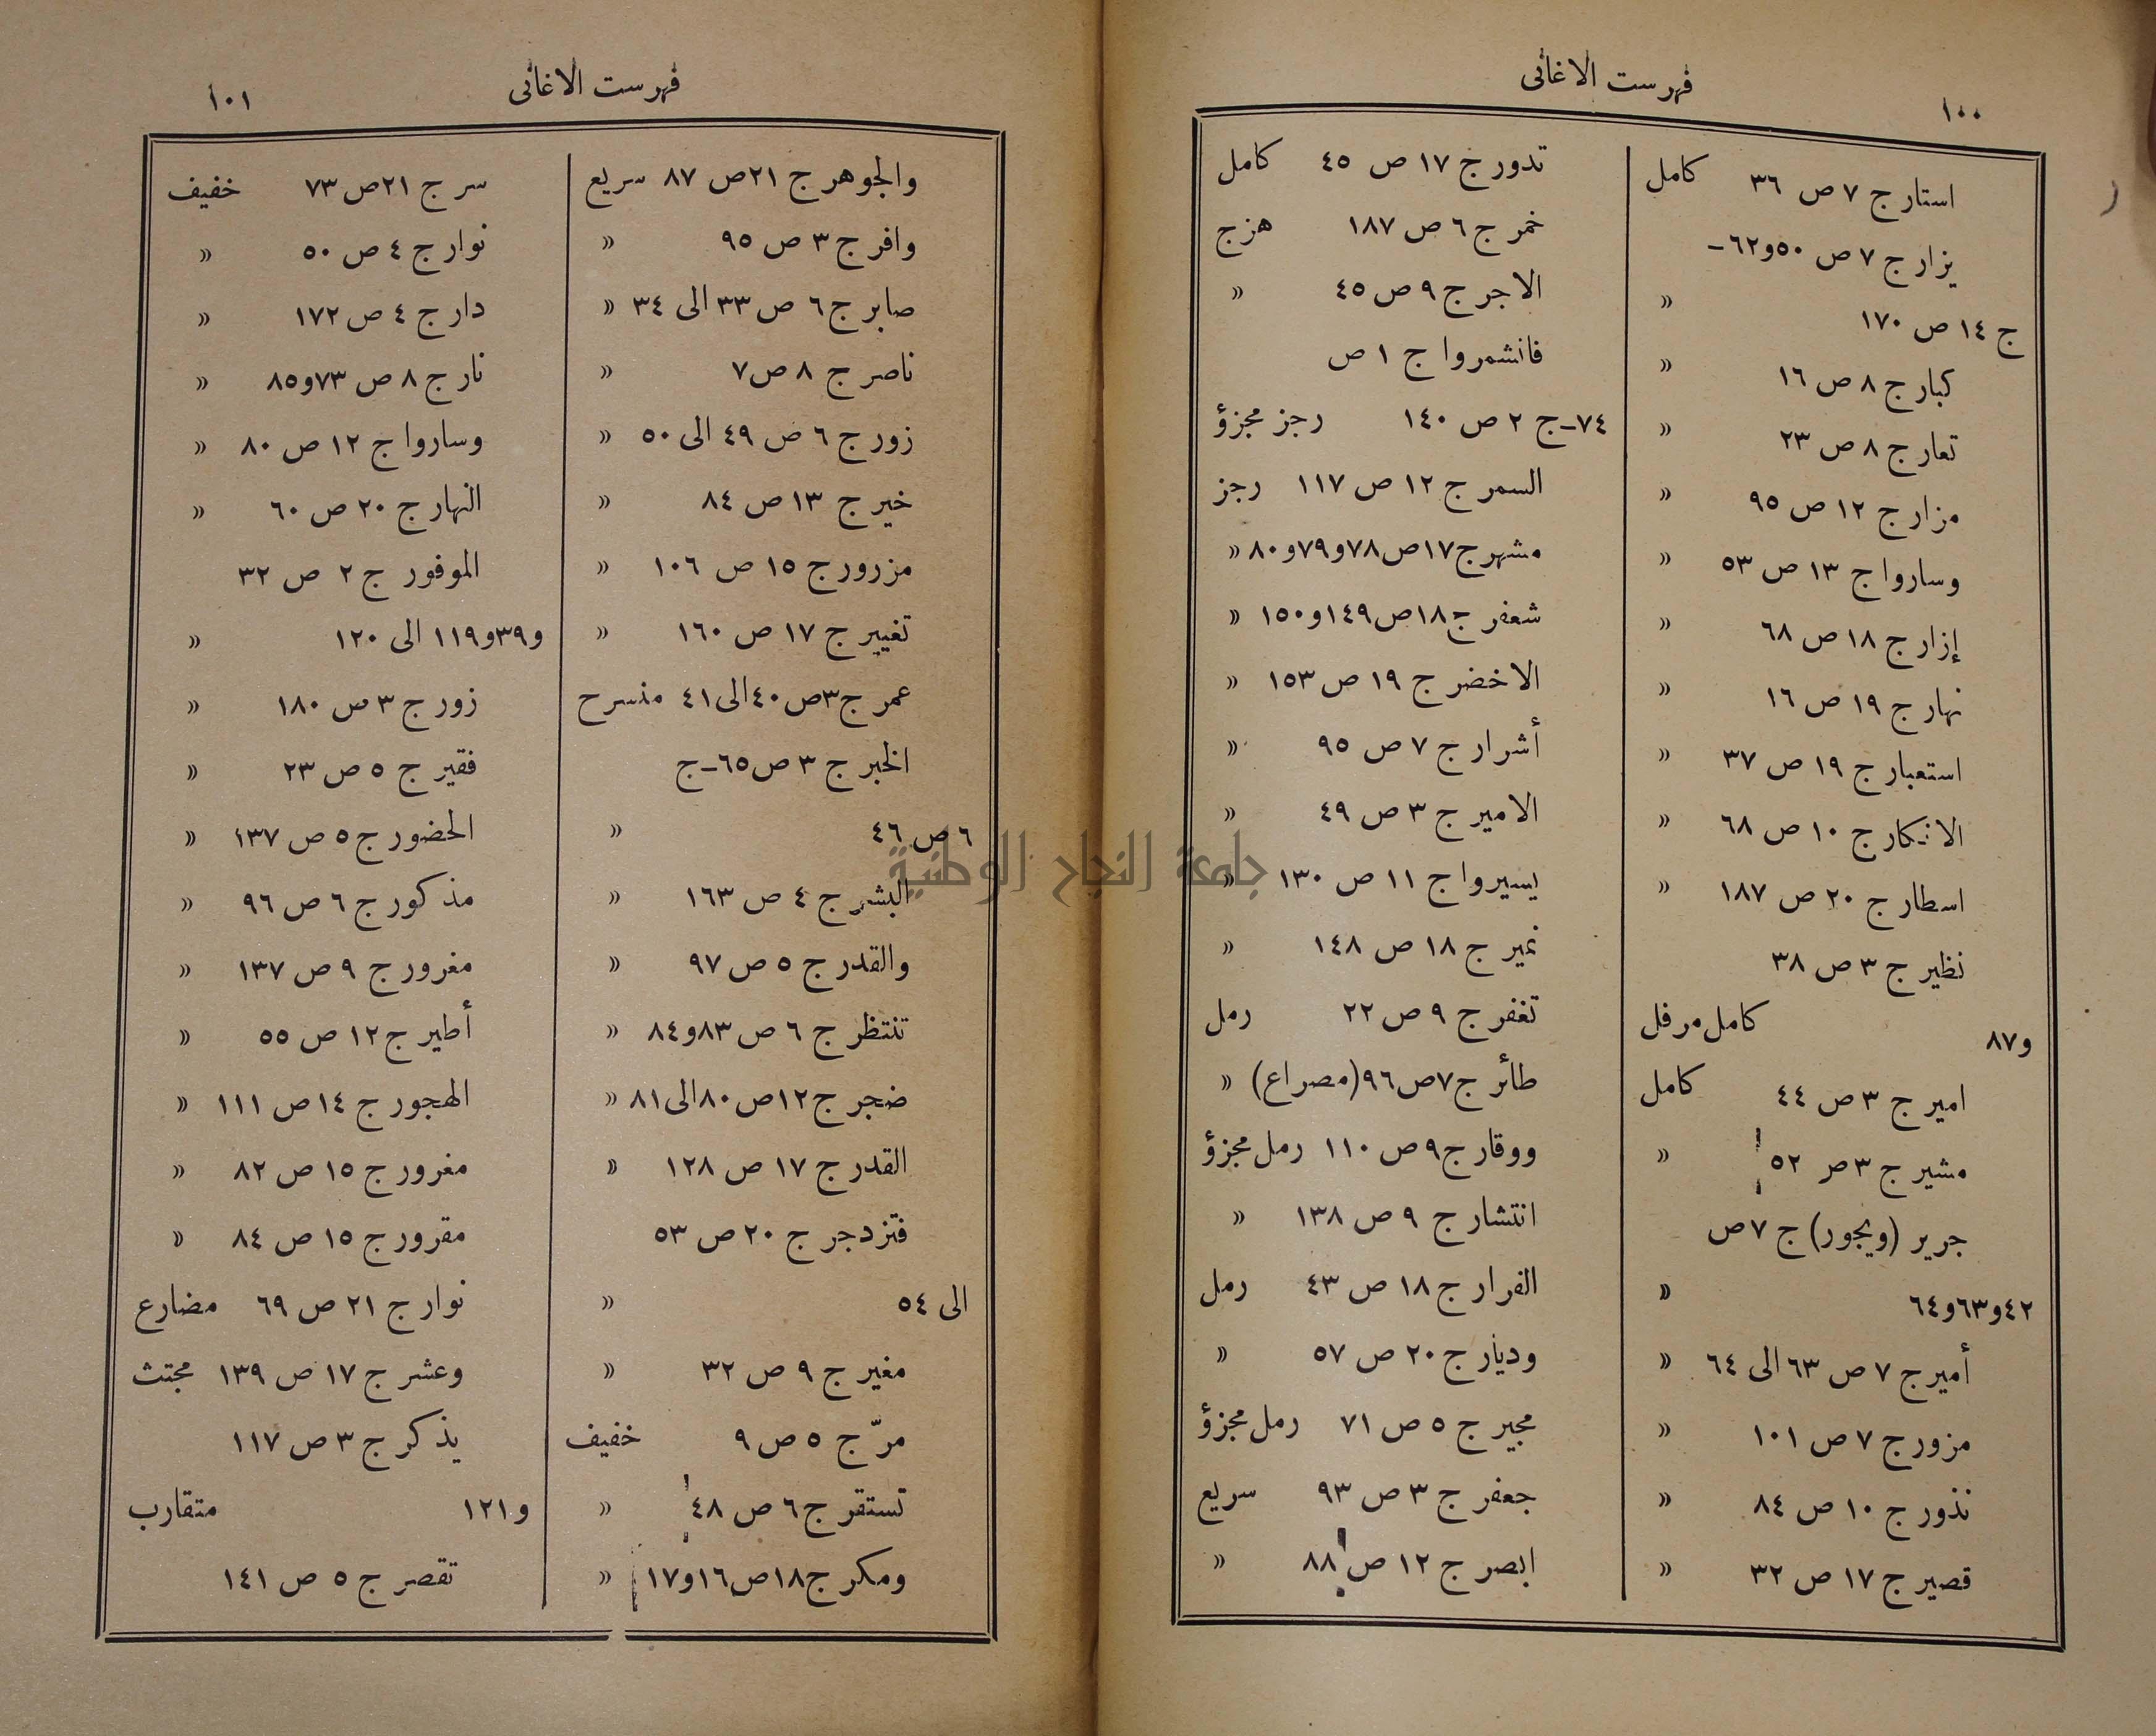 ١٠٠
فهرست الاغانى
استار ج ٧ ص ٣٦ كامل
يزار ج ٧ ص ٥٠ و٦٢ـ
ج ١٤ ص ١٧٠ «
كبار ج ٨ ص ١٦ «
تعار ج ٨ ص ٢٣ «
مزار ج ١٢ ص ٩٥ «
وساروا ج ١٣ ص ٥٣ «
إزار ج ١٨ ص ٦٨ «
نهار ج ١٩ ص ١٦ «
استعبار ج ١٩ ص ٣٧ «
الانكار ج ١٠ ص ٦٨ «
اسطار ج ٢٠ ص ١٨٧ «
نظير ج ٣ ص ٣٨
و٨٧ كامل مرفل
امير ج ٣ ص ٤٤ كامل
مشير ج ٣ ص ٥٢ «
جرير (ويجور) ج ٧ ص
٤٢ و٦٣ و٦٤ «
أمير ج ٧ ص ٦٣ الى ٦٤ «
مزور ج ٧ ص ١٠١ «
نذور ج ١٠ ص ٨٤ «
قصير ج ١٧ ص ٣٢ «
تدور ج ١٧ ص ٤٥ كامل
خمر ج ٦ ص ١٨٧ هزج
الاجر ج ٩ ص ٤٥ «
فانشمروا ج ١ ص
٧٤ـ ج ٢ ص ١٤٠ رجز مجزؤ
السمر ج ١٢ ص ١١٧ رجز
مشهر ج ١٧ ص ٧٨ و٧٩ و٨٠ «
شعفر ج ١٨ ص ١٤٩ و١٥٠ «
الاخضر ج ١٩ ص ١٥٣ «
أشرار ج ٧ ص ٩٥ «
الامير ج ٣ ص ٤٩ «
يسيروا ج ١١ ص ١٣٠ «
نمير ج ١٨ ص ١٤٨ «
تغفر ج ٩ ص ٢٢ رمل
طائر ج ٧ ص ٩٦ (مصراع) «
ووقار ج ٩ ص ١١٠ رمل مجزؤ
انتشار ج ٩ ص ١٣٨ «
الفرار ج ١٨ ص ٤٣ رمل
وديار ج ٢٠ ص ٥٧ «
مجير ج ٥ ص ٧١ رمل مجزؤ
جعفر ج ٣ ص ٩٣ سريع
ابصر ج ١٢ ص ٨٨ «
فهرست الاغانى
١٠١
والجوهر ج ٢١ ص ٨٧ سريع
وافر ج ٣ ص ٩٥ «
صابر ج ٦ ص ٣٣ الى ٣٤ «
ناصر ج ٨ ص ٧ «
زور ج ٦ ص ٤٩ الى ٥٠ «
خير ج ١٣ ص ٨٤ «
مزرور ج ١٥ ص ١٠٦ «
تغيير ج ١٧ ص ١٦٠ «
عمر ج ٣ ص ٤٠ الى ٤١ منسرح
الخبر ج ٣ ص ٦٥ـ ج
٦ ص ٤٦ «
البشر ج ٤ ص ١٦٣ «
والقدر ج ٥ ص ٩٧ «
تنتظر ج ٦ ص ٨٣ و٨٤ «
ضجر ج ١٢ ص ٨٠ الى ٨١ «
القدر ج ١٧ ص ١٢٨ «
فتزدجر ج ٢٠ ص ٥٣
الى ٥٤ «
مغير ج ٩ ص ٣٢ «
مرّ ج ٥ ص ٩ خفيف
تستقر ج ٦ ص ٤٨ «
ومكر ج ١٨ ص ١٦ و١٧ «
سر ج ٢١ ص ٧٣ خفيف
نوار ج ٤ ص ٥٠ «
دار ج ٤ ص ١٧٢ «
نار ج ٨ ص ٧٣ و٨٥ «
وساروا ج ١٢ ص ٨٠ «
النهار ج ٢٠ ص ٦٠ «
الموفور ج ٢ ص ٣٢
و٣٩ و١١٩ الى ١٢٠ «
زور ج ٣ ص ١٨٠ «
فقير ج ٥ ص ٢٣ «
الحضور ج ٥ ص ١٣٧ «
مذكور ج ٦ ص ٩٦ «
مغرور ج ٩ ص ١٣٧ «
أطير ج ١٢ ص ٥٥ «
الهجور ج ١٤ ص ١١١ «
مغرور ج ١٥ ص ٨٢ «
مقرور ج ١٥ ص ٨٤ «
نوار ج ٢١ ص ٦٩ مضارع
وعشر ج ١٧ ص ١٣٩ مجتث
يذكر ج ٣ ص ١١٧
و١٢١ متقارب
تقصر ج ٥ ص ١٤١
جامعة النجاح الوطنية